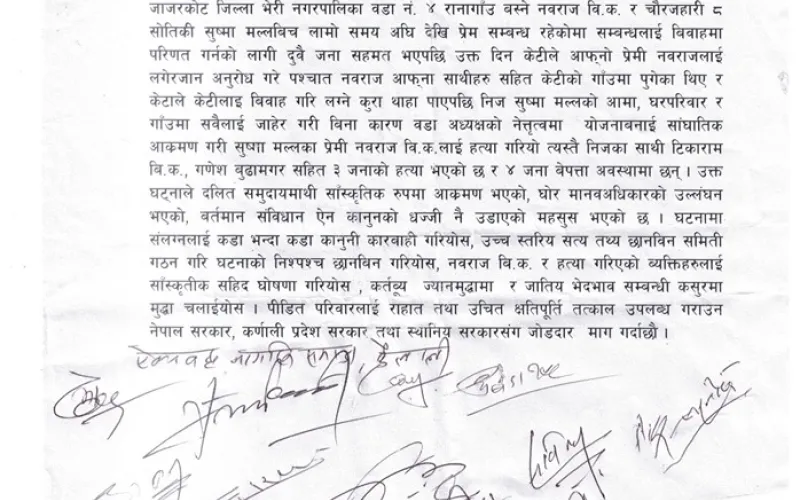 जाजरकोट जिल्ला भेरी नगरपालिका वडा नं. ४ रानागाउँ वस्ने नवराज वि.क. र चौरजहारी ८
सोतिकी सुष्मा मल्लविच लामो समय अघि देखि प्रेम सम्बन्ध रहेकोमा सम्बन्धलाई विवाहमा
परिणत गर्नको लागी दुवै जना सहमत भएपछि उक्त दिन केटीले आफ्नो प्रेमी नवराजलाई
लगेरजान अनुरोध गरे पश्चात नवराज आफ्ना साथीहरु सहित केटीको गाउँमा पुगेका थिए र
केटाले केटीलाइ विवाह गरि लग्ने कुरा थाहा पाएपछि निज सुष्मा मल्लको आमा, घरपरिवार र
गाउँमा सवैलाई जाहेर गरी विना कारण वडा अध्यक्षको नेत्तृत्वमा योजनावनाई सांघातिक
आक्रमण गरी सुष्मा मल्लका प्रेमी नवराज वि.क.लाई हत्या गरियो त्यस्तै निजका साथी टिकाराम
वि.क., गणेश वुढामगर सहित ३ जनाको हत्या भएको छ र ४ जना बेपत्ता अवस्थामा छन् । उक्त
घट्नाले दलित समुदायमाथी साँस्कृतिक रुपमा आक्रमण भएको, घोर मानवअधिकारको उल्लंघन
भएको, वर्तमान संविधान ऐन कानुनको धज्जी नै उडाएको महसुस भएको छ । घटनामा
संलग्नलाई कडा भन्दा कडा कानुनी कारवाही गरियोस, उच्च स्तरिय सत्य तथ्य छानविन समिती
गठन गरि घटनाको निश्पश्च छानविन गरियोस, नवराज वि.क. र हत्या गरिएको व्यक्तिहरुलाई
साँस्कृतीक सहिद घोषणा गरियोस , कर्तव्य ज्यानमुद्धामा र जातिय भेदभाव सम्वन्धी कसुरमा
मुद्धा चलाईयोस । पीडित परिवारलाई राहात तथा उचित क्षतिपूर्ति तत्काल उपलब्ध गराउन
नेपाल सरकार, कर्णाली प्रदेश सरकार तथा स्थानिय सरकारसंग जोडदार माग गर्दाछौ ।